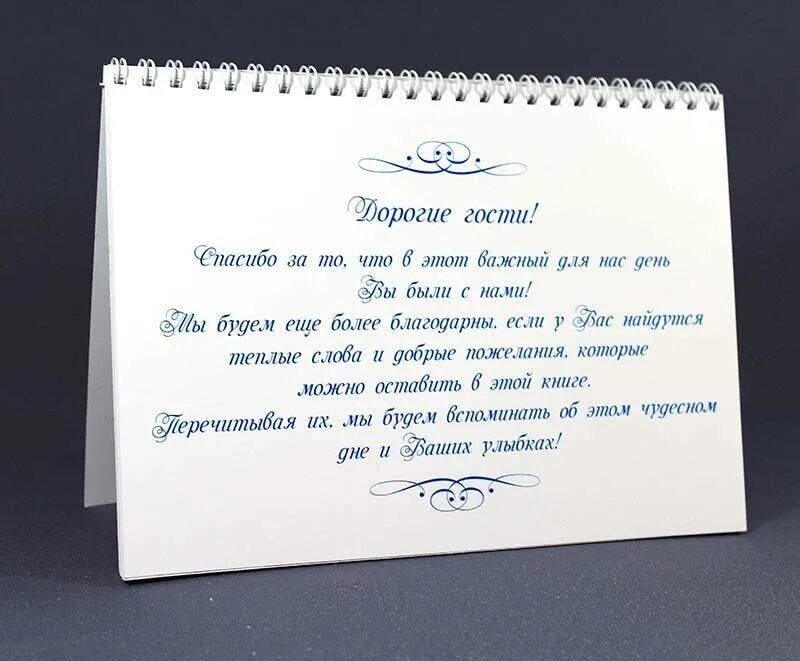 Дорогие гости!
Спасибо за то, что в этот важный для нас день
Вы были с нами!
Мы будем еще более благодарны, если у Вас найдутся
теплые слова и добрые пожелания, которые
можно оставить в этой книге.
Перечитывая их, мы будем вспоминать об этом чудесном
дне и Ваших улыбках!